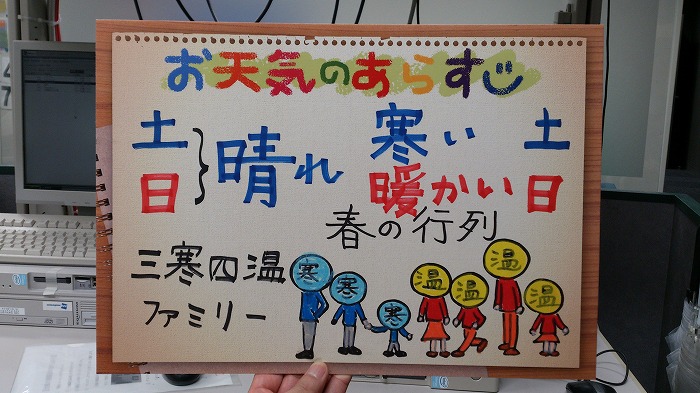 お天気のあらすじ
土
日
晴れ
寒い 土
暖かい 日
春の行列
三寒四温
ファミリー
寒 寒 寒 温 温 温 温